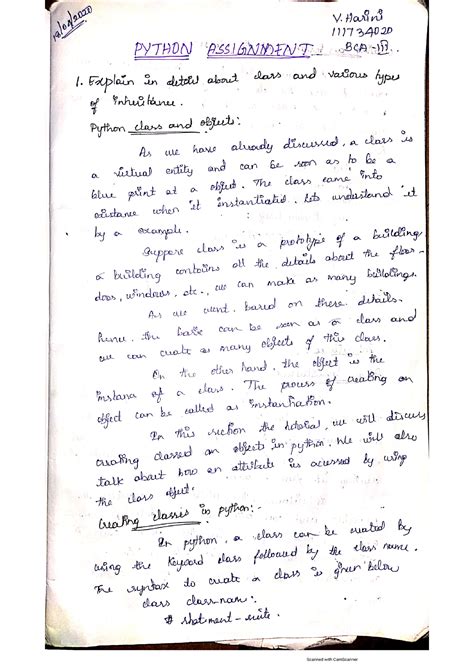 19/04/2020
V. Harini
111734020
PYTHON ASSIGNMENT BCA-III
1. Explain in detail about class and various types
of inheritance.
Python class and object:
As we have already discussed, a class is
a virtual entity and can be seen as to be a
blue print at a object. The class came into
existance when it instantiated. lets understand it
by a example.
Suppose class is a prototype of a building
a building contains all the details about the floor-
doos, windows, etc., we can make as many buildings.
As we want. based on these details.
hence. the can be seen as a class and
we can create as many objects of this class.
On the other hand. the object is the
instana of a class. The process of creating an
object can be called as instantiation.
In this section the tutorial, we will discuss
creating classed an objects in python. We will also
talk about how an attribute is acessed by using
the class object.
Creating classes in python:-
In python, a class can be created by
using the Keyword class followed by the class name.
The syntax to create a class is given below
class classname:
# statment - suite.
Scanned with CamScanner